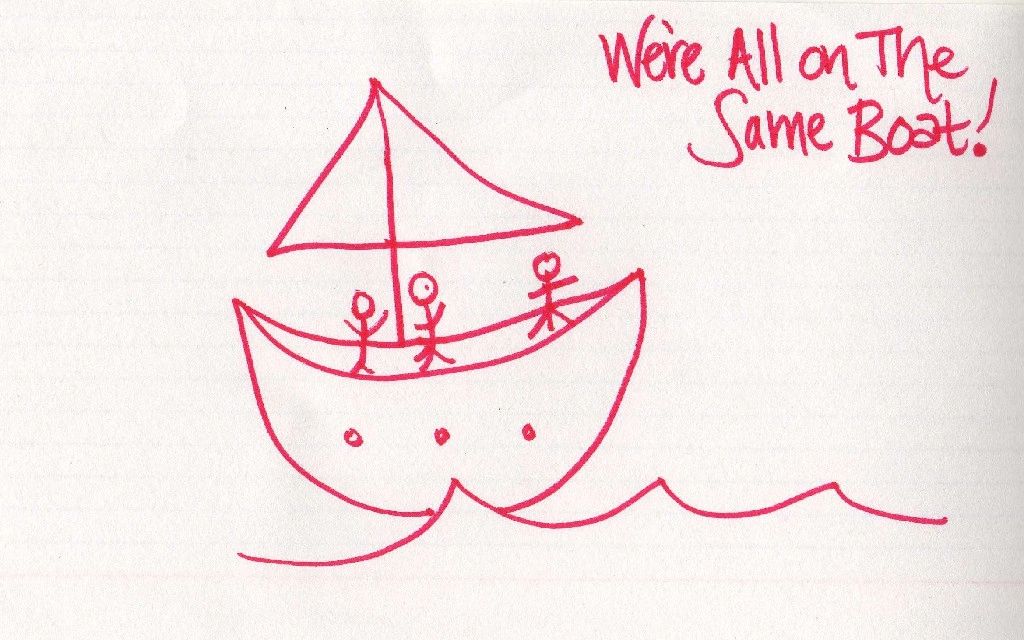 We're All on The
Same Boat!